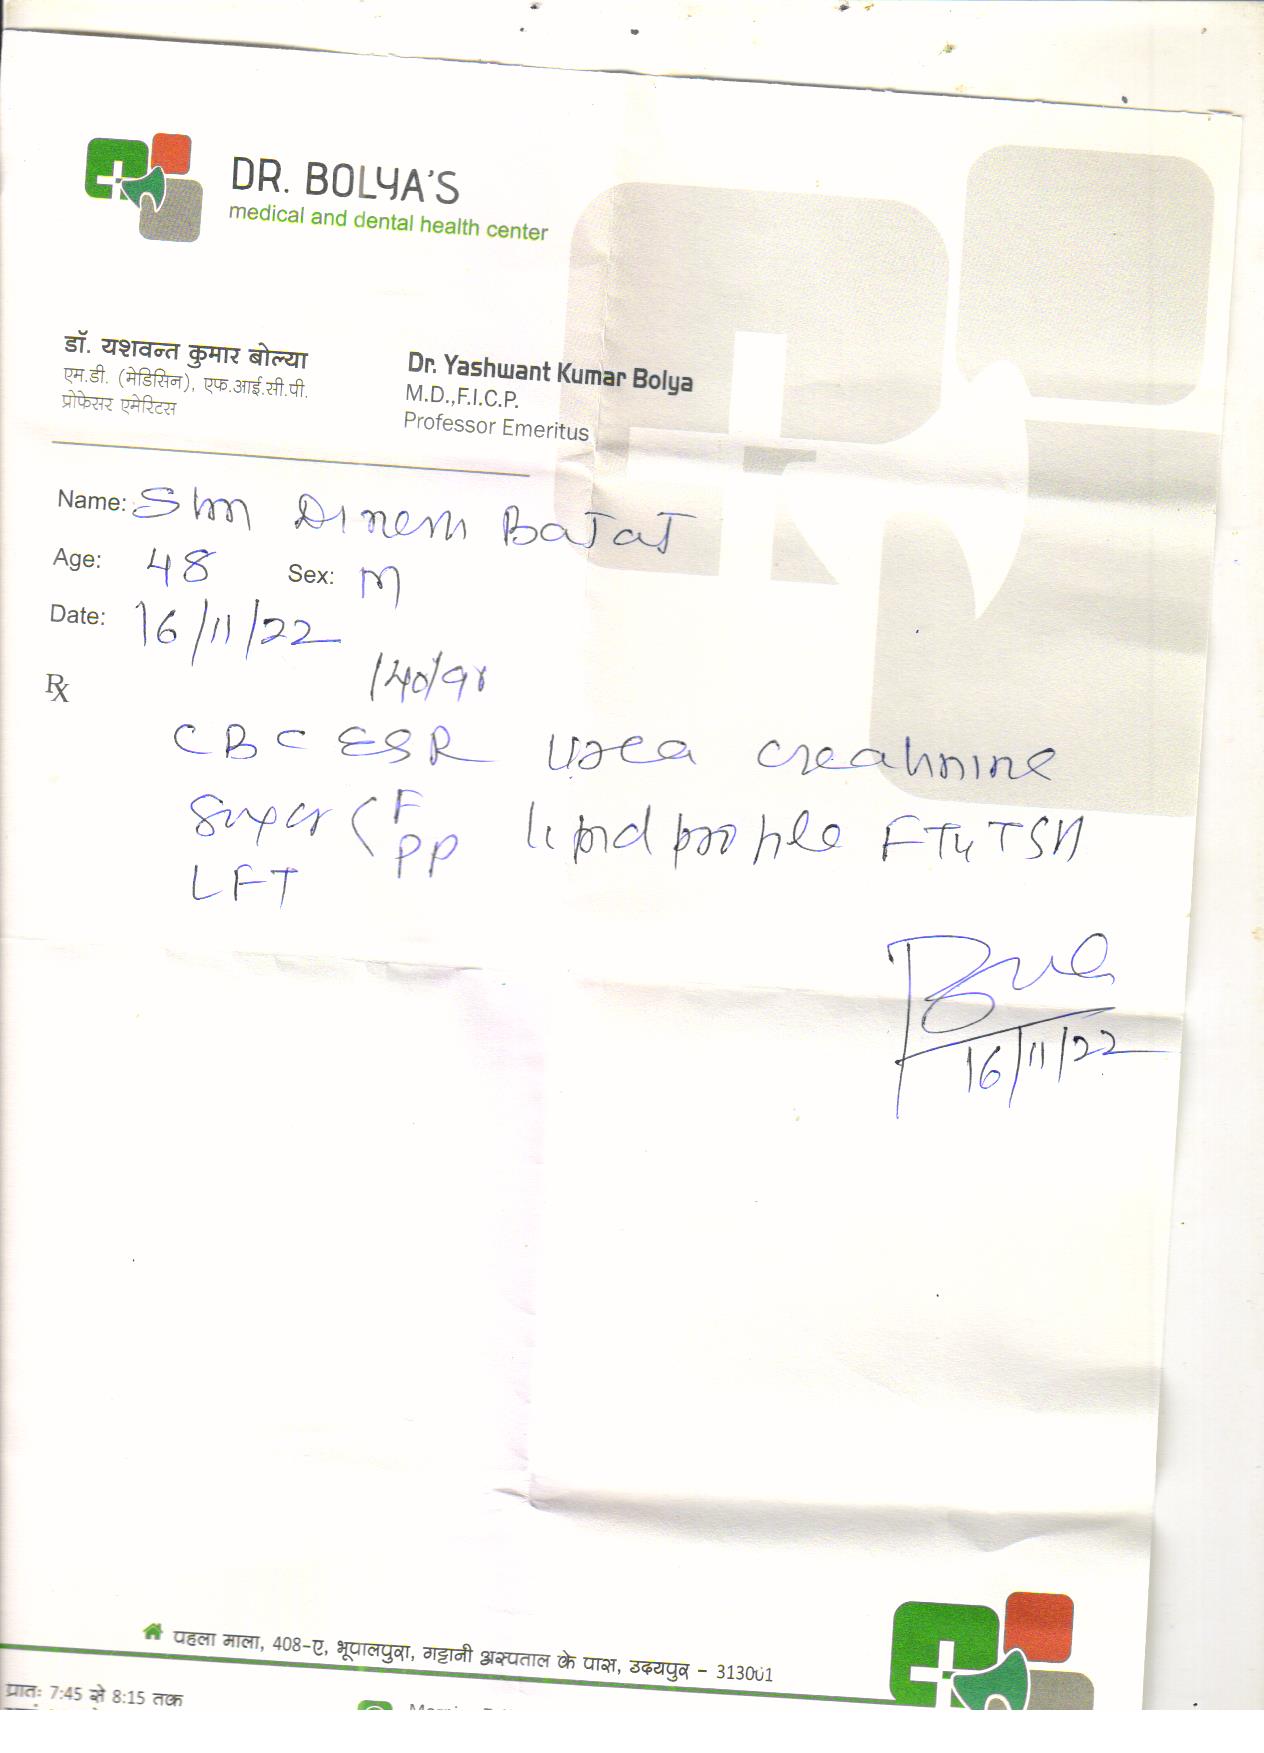 DR. BOLYA'S
medical and dental health center
डॉ. यशवन्त कुमार बोल्या
एम.डी. (मेडिसिन), एफ.आई.सी.पी.
प्रोफेसर एमेरिटस
Dr. Yashwant Kumar Bolya
M.D.,F.I.C.P.
Professor Emeritus
Name: Shri Dinesh Bajaj
Age: 48 Sex: M
Date: 16/11/22
Rx 140/90
CBC ESR Urea creatinine
Sugar < F PP lipid profile FT4 TSH
LFT
16/11/22
पहला माला, 408-ए, भूपालपुरा, गट्टानी अस्पताल के पास, उदयपुर - 313001
प्रातः 7:45 से 8:15 तक